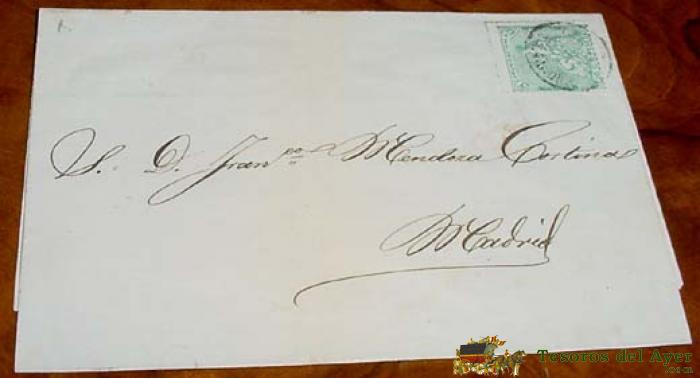 S. D. Fran.co Mendoza Cortina
Madrid
Tesoros del Ayer
.com